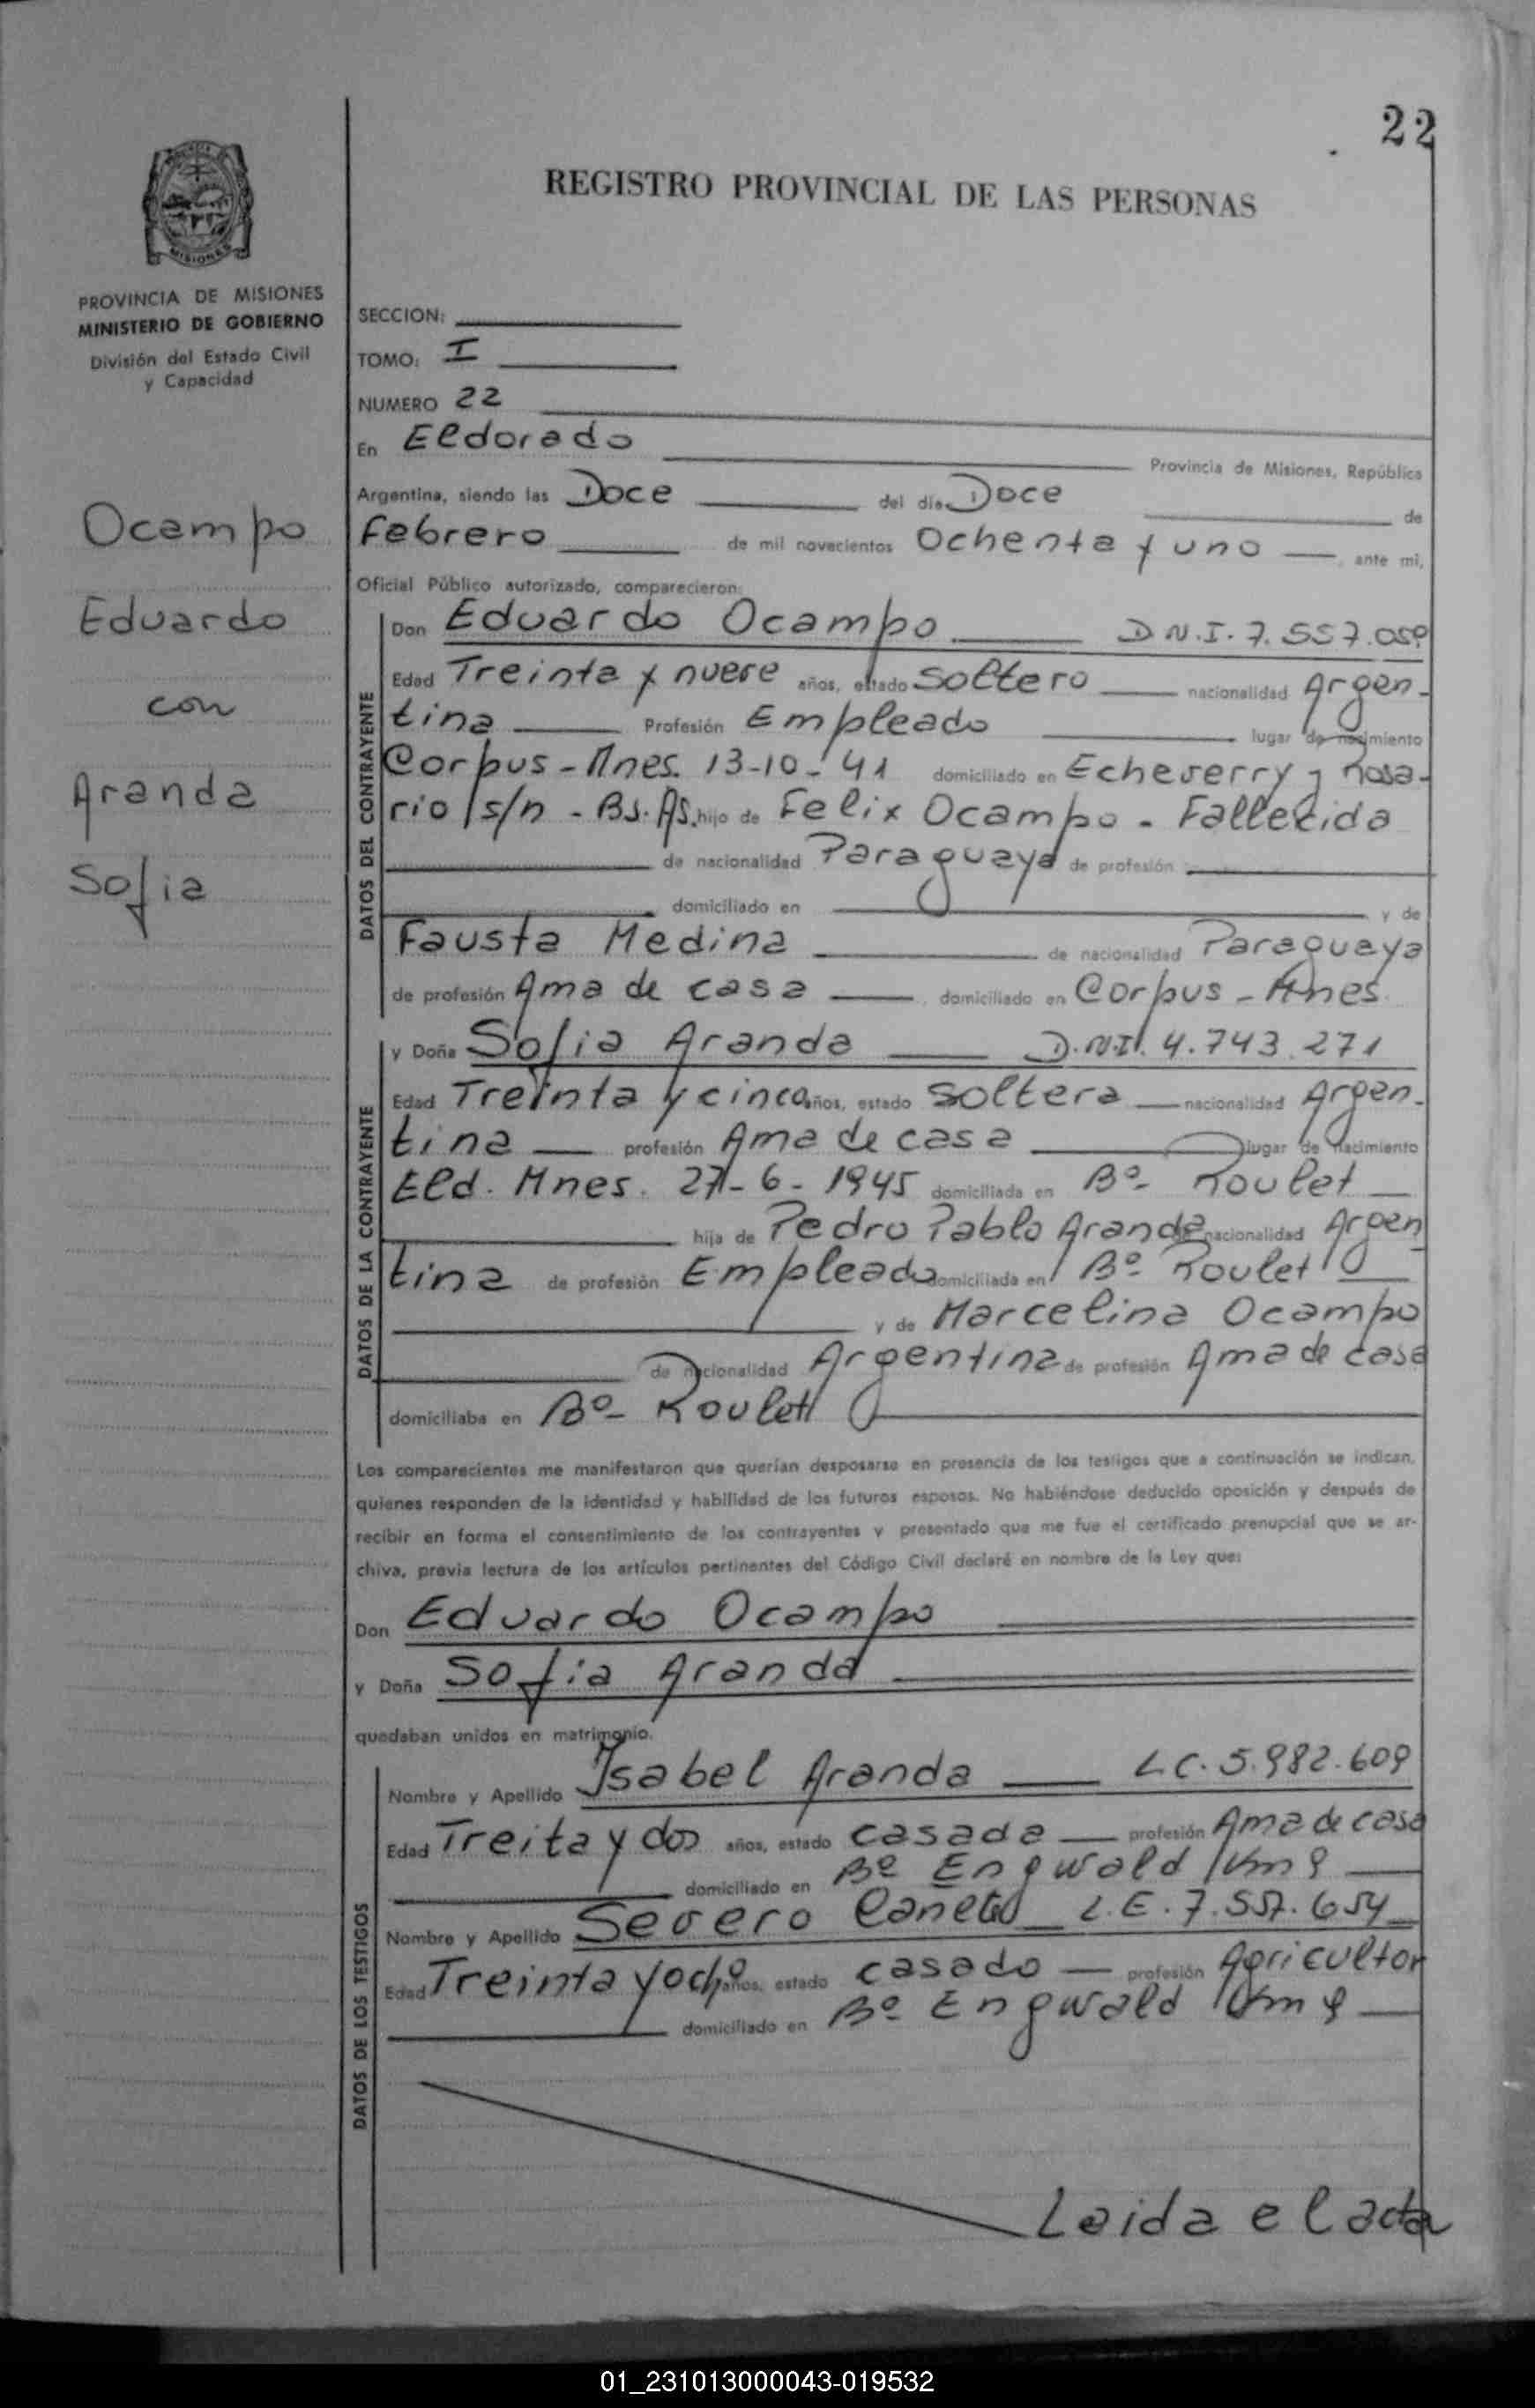 22
REGISTRO PROVINCIAL DE LAS PERSONAS
MISIONES
PROVINCIA DE MISIONES
MINISTERIO DE GOBIERNO
División del Estado Civil
y Capacidad
Ocampo
Eduardo
con
Aranda
Sofia
SECCION:
TOMO: I
NUMERO 22
En Eldorado Provincia de Misiones, República
Argentina, siendo las Doce del día Doce de
Febrero de mil novecientos Ochenta y uno ante mi,
Oficial Público autorizado, comparecieron:
DATOS DEL CONTRAYENTE
Don Eduardo Ocampo D.N.I. 7.557.059
Edad Treinta y nueve años, estado Soltero nacionalidad Argen-
tina Profesión Empleado lugar de nacimiento
Corpus - Mnes. 13-10-41 domiciliado en Echeverry y Rosa-
rio s/n - Bs. As. hijo de Felix Ocampo - Fallecido
de nacionalidad Paraguaya de profesión
domiciliado en y de
Fausta Medina de nacionalidad Paraguaya
de profesión Ama de casa domiciliado en Corpus - Mnes.
DATOS DE LA CONTRAYENTE
y Doña Sofia Aranda D.N.I. 4.743.271
Edad Treinta y cinco años, estado soltera nacionalidad Argen-
tina profesión Ama de casa lugar de nacimiento
Eld. Mnes. 27-6-1945 domiciliada en Bº- Roulet
hija de Pedro Pablo Aranda nacionalidad Argen
tina de profesión Empleado domiciliada en Bº- Roulet
y de Marcelina Ocampo
de nacionalidad Argentina de profesión Ama de casa
domiciliaba en Bº- Roulet
Los comparecientes me manifestaron que querían desposarse en presencia de los testigos que a continuación se indican,
quienes responden de la identidad y habilidad de los futuros esposos. No habiéndose deducido oposición y después de
recibir en forma el consentimiento de los contrayentes y presentado que me fue el certificado prenupcial que se ar-
chiva, previa lectura de los artículos pertinentes del Código Civil declaré en nombre de la Ley que:
Don Eduardo Ocampo
y Doña Sofia Aranda
quedaban unidos en matrimonio.
DATOS DE LOS TESTIGOS
Nombre y Apellido Isabel Aranda L.C. 5.982.609
Edad Treita y dos años, estado casada profesión Ama de casa
domiciliado en Bº Engwald Km 9
Nombre y Apellido Severo L.E. 7.557.654
Edad Treinta y ocho años, estado casado profesión Agricultor
domiciliado en Bº Engwald Km 9
Leida el acta
01_231013000043-019532